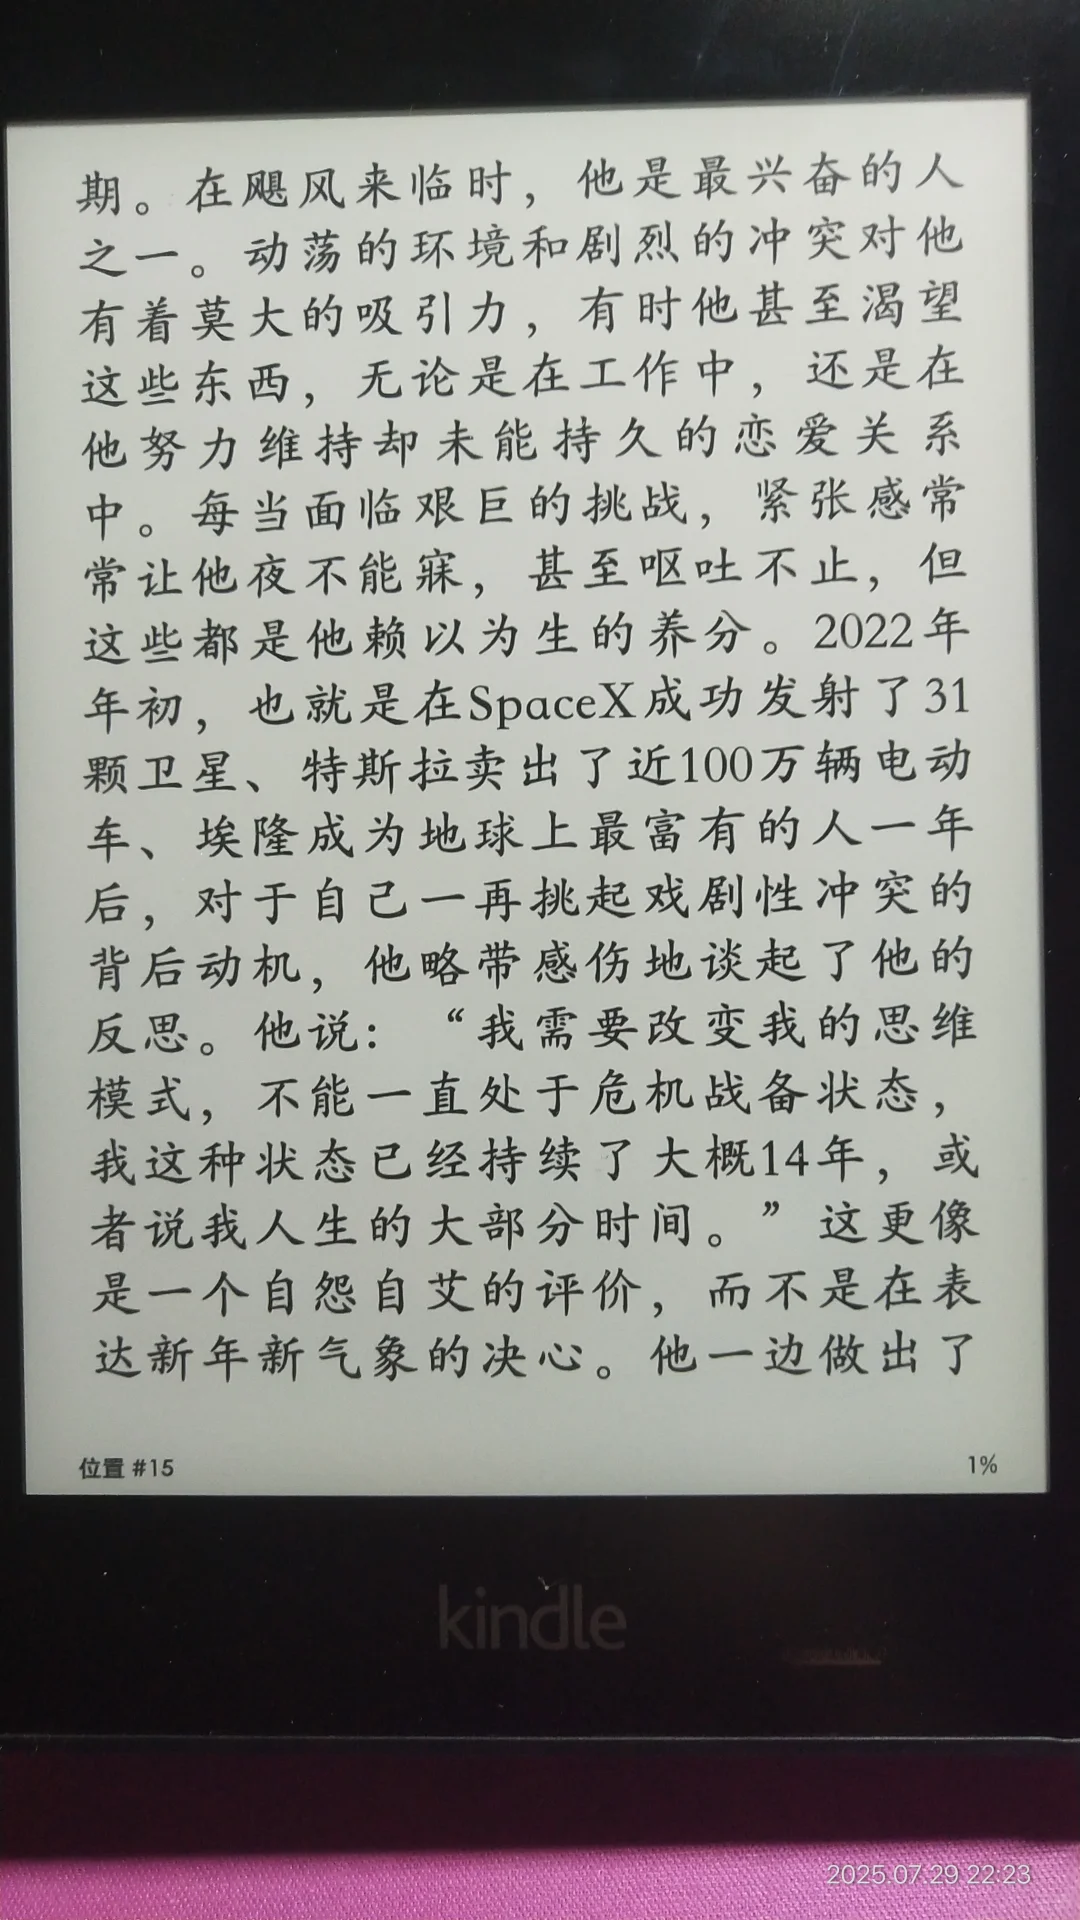 期。在飓风来临时，他是最兴奋的人
之一。动荡的环境和剧烈的冲突对他
有着莫大的吸引力，有时他甚至渴望
这些东西，无论是在工作中，还是在
他努力维持却未能持久的恋爱关系
中。每当面临艰巨的挑战，紧张感常
常让他夜不能寐，甚至呕吐不止，但
这些都是他赖以为生的养分。2022年
年初，也就是在SpaceX成功发射了31
颗卫星、特斯拉卖出了近100万辆电动
车、埃隆成为地球上最富有的人一年
后，对于自己一再挑起戏剧性冲突的
背后动机，他略带感伤地谈起了他的
反思。他说：“我需要改变我的思维
模式，不能一直处于危机战备状态，
我这种状态已经持续了大概14年，或
者说我人生的大部分时间。”这更像
是一个自怨自艾的评价，而不是在表
达新年新气象的决心。他一边做出了
位置 #15
1%
kindle
2025.07.29 22:23